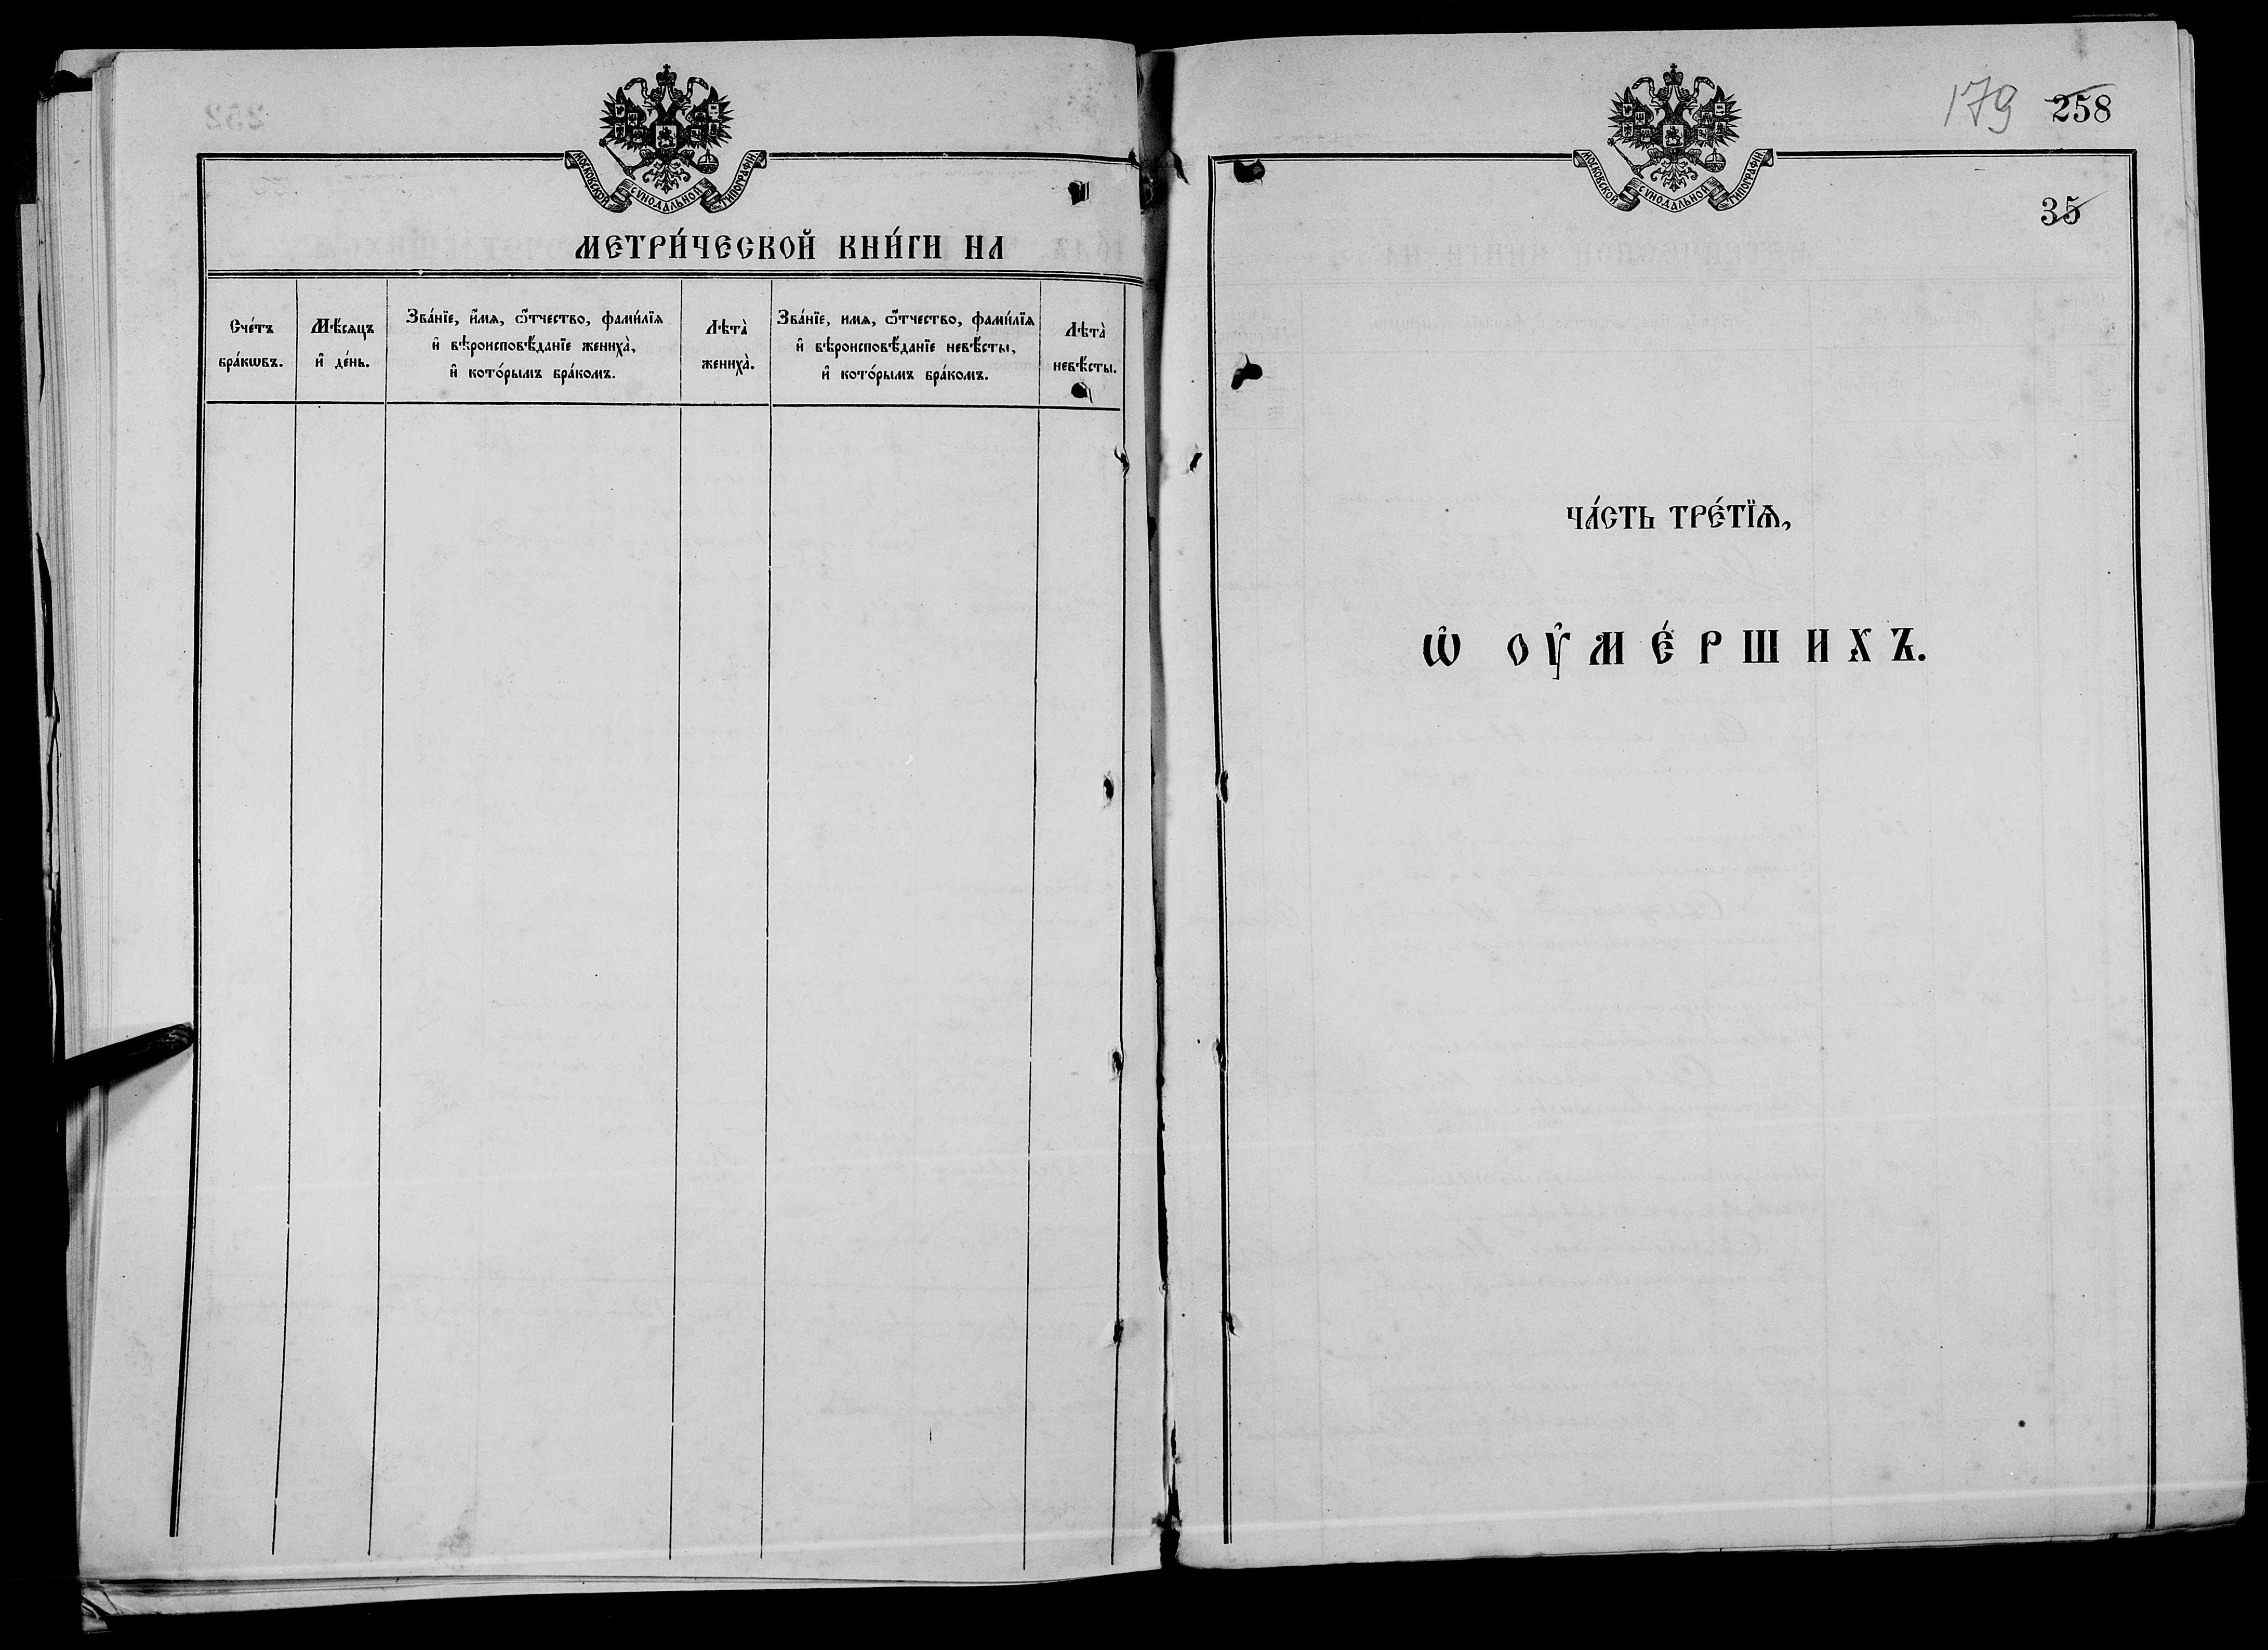 МОСКОВСКОЙ СѴНОДАЛЬНОЙ ТИПОГРАФІИ
МЕТРИ́ЧЕСКОЙ КНИ́ГИ НА
Сче́тъ бра́кѡвъ.
Мѣ́сяцъ и҆ де́нь.
Зва́нїе, и҆́мя, ѻ҆́тчество, фами́лїя
и҆ вѣроисповѣ́данїе жениха̀,
и҆ кото́рымъ бра́комъ.
Лѣта̀ жениха̀.
Зва́нїе, имя, ѻ҆́тчество, фами́лїя
и҆ вѣроисповѣ́данїе невѣ́сты,
и҆ кото́рымъ бра́комъ.
Лѣта̀ невѣ́сты.
179 258
МОСКОВСКОЙ СѴНОДАЛЬНОЙ ТИПОГРАФІИ
35
ЧА́СТЬ ТРЕ́ТЇѦ,
Ѡ҆ ОУ҆МЕ́РШИХЪ.